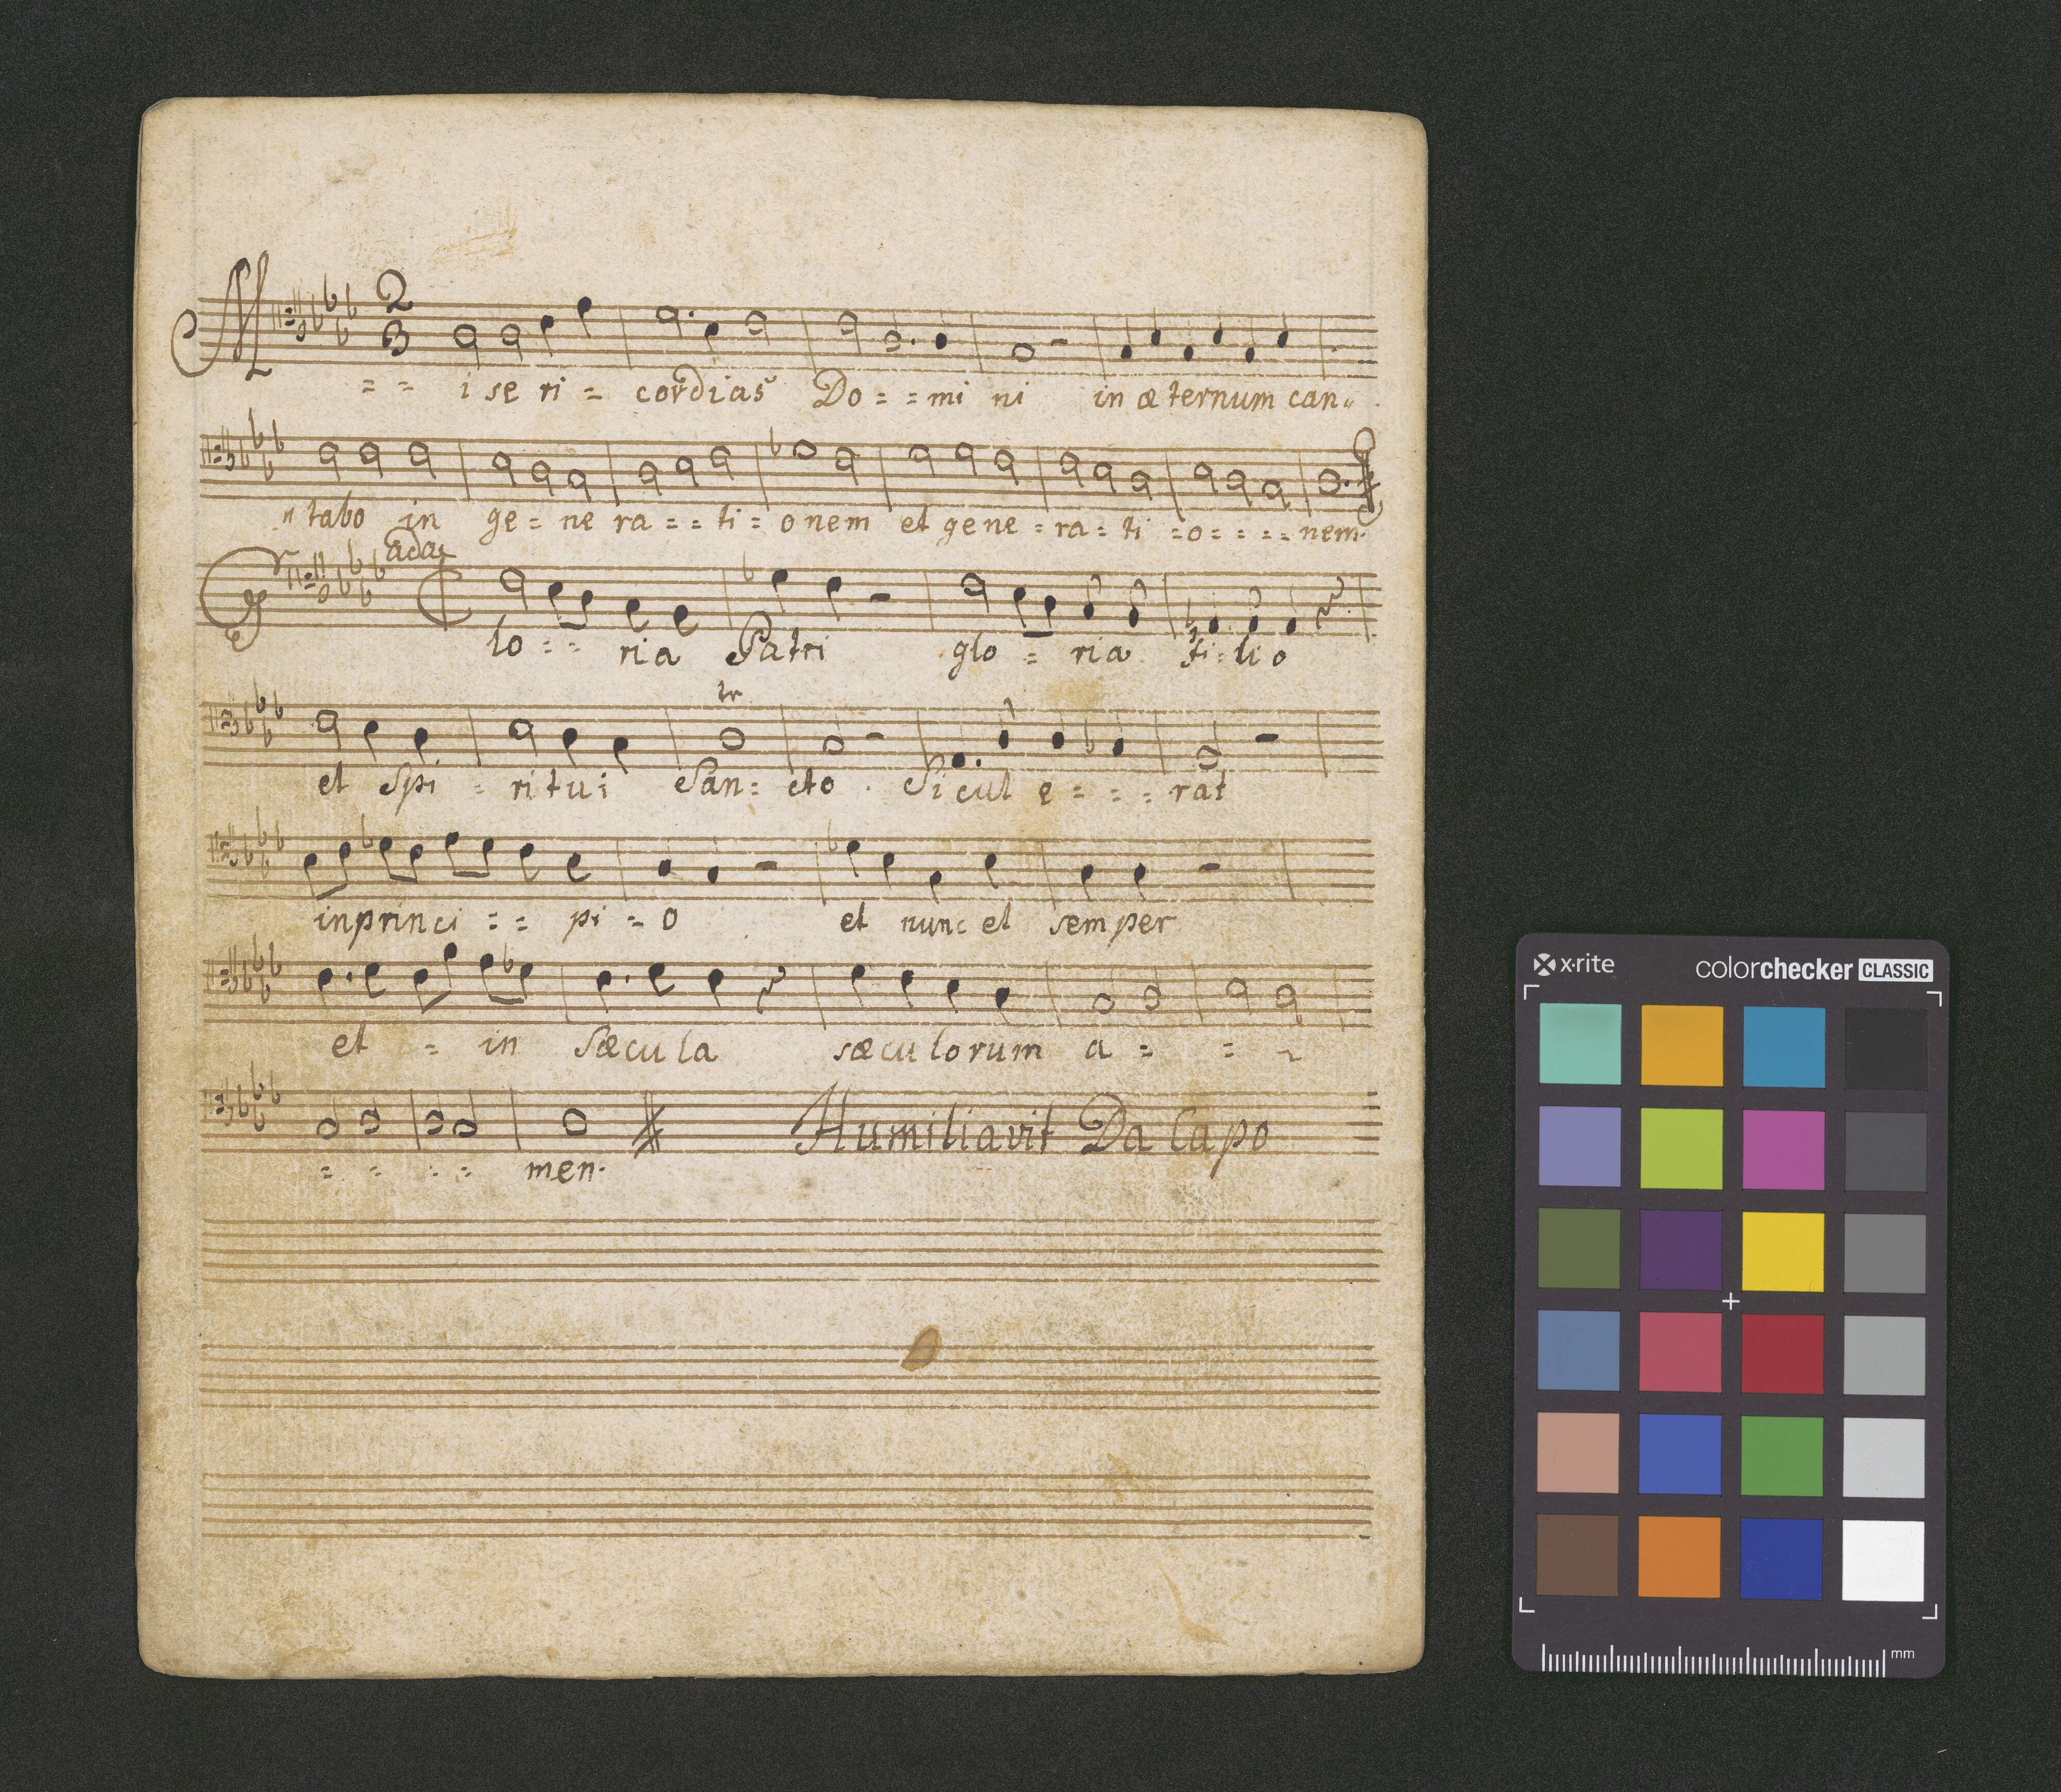 2
3
M = = i se ri = cordias Do = = mi ni in æ ternum can„
„ tabo in ge = ne ra = = ti = o nem et gene = ra = ti = o = = = = nem.
adag
G lo = = ria Patri glo = ria fi = li o
tr
et Spi = ritui San = cto . Sicut e = = = rat
in princi = = pi = o et nunc et semper
et = in Sæcula sæculorum a = =
= = = = men.
Humiliavit Da Capo
x·rite colorchecker CLASSIC
mm